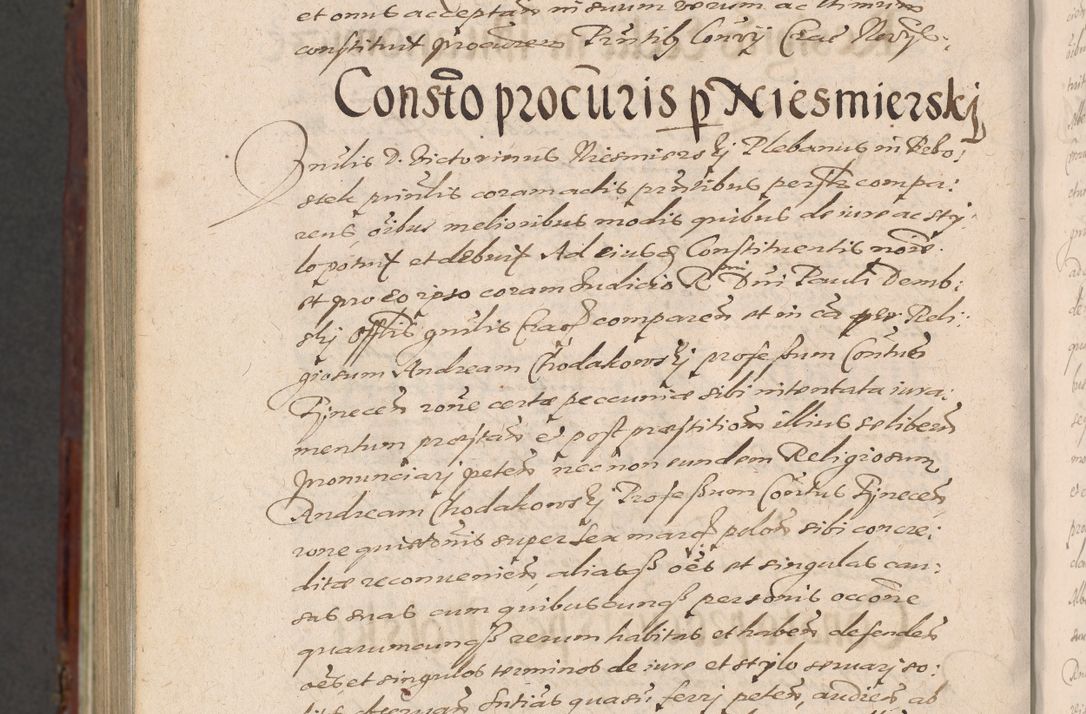 et onus acceptan in suum verum ac ltimum
constituit procurem Prntib Conrij Crac
Constõ procuris p Niesmierskj
Vnrlis D. Victorinus Niesmierskj Plebanus in Rebo:
stek prinlis coram actis prntibus persr compa:
rens, oibus melioribus modis quibus de iure ac sty:
lo potuit et debuit Ad eiusq Constituentis noie
et pro eo ipso coram Iudicio R Dni Pauli Demb:
ski offlis gnrlis Crac comparen et in ca per Reli:
giosum Andream Chodakowskj professum Contus
Tynecen rone certæ peccuniæ sibi intentata iura:
mentum præstan e post præstition illius se liberu
pronunciarj peten nec non eundem Religiosum
Andream Chodakowskj Professum Contus Tynecen
rone quietonis super sex marcs polon sibi concre:
ditæ reconvenien, alias oes et singulas cau:
sas suas cum quibuscunq personis occone
quarumcunq rerum habitas et haben defenden
oes et singulos terminos de iure et stylo servarj so:
litos observan Sntias quasuis ferrj peten, audien ab